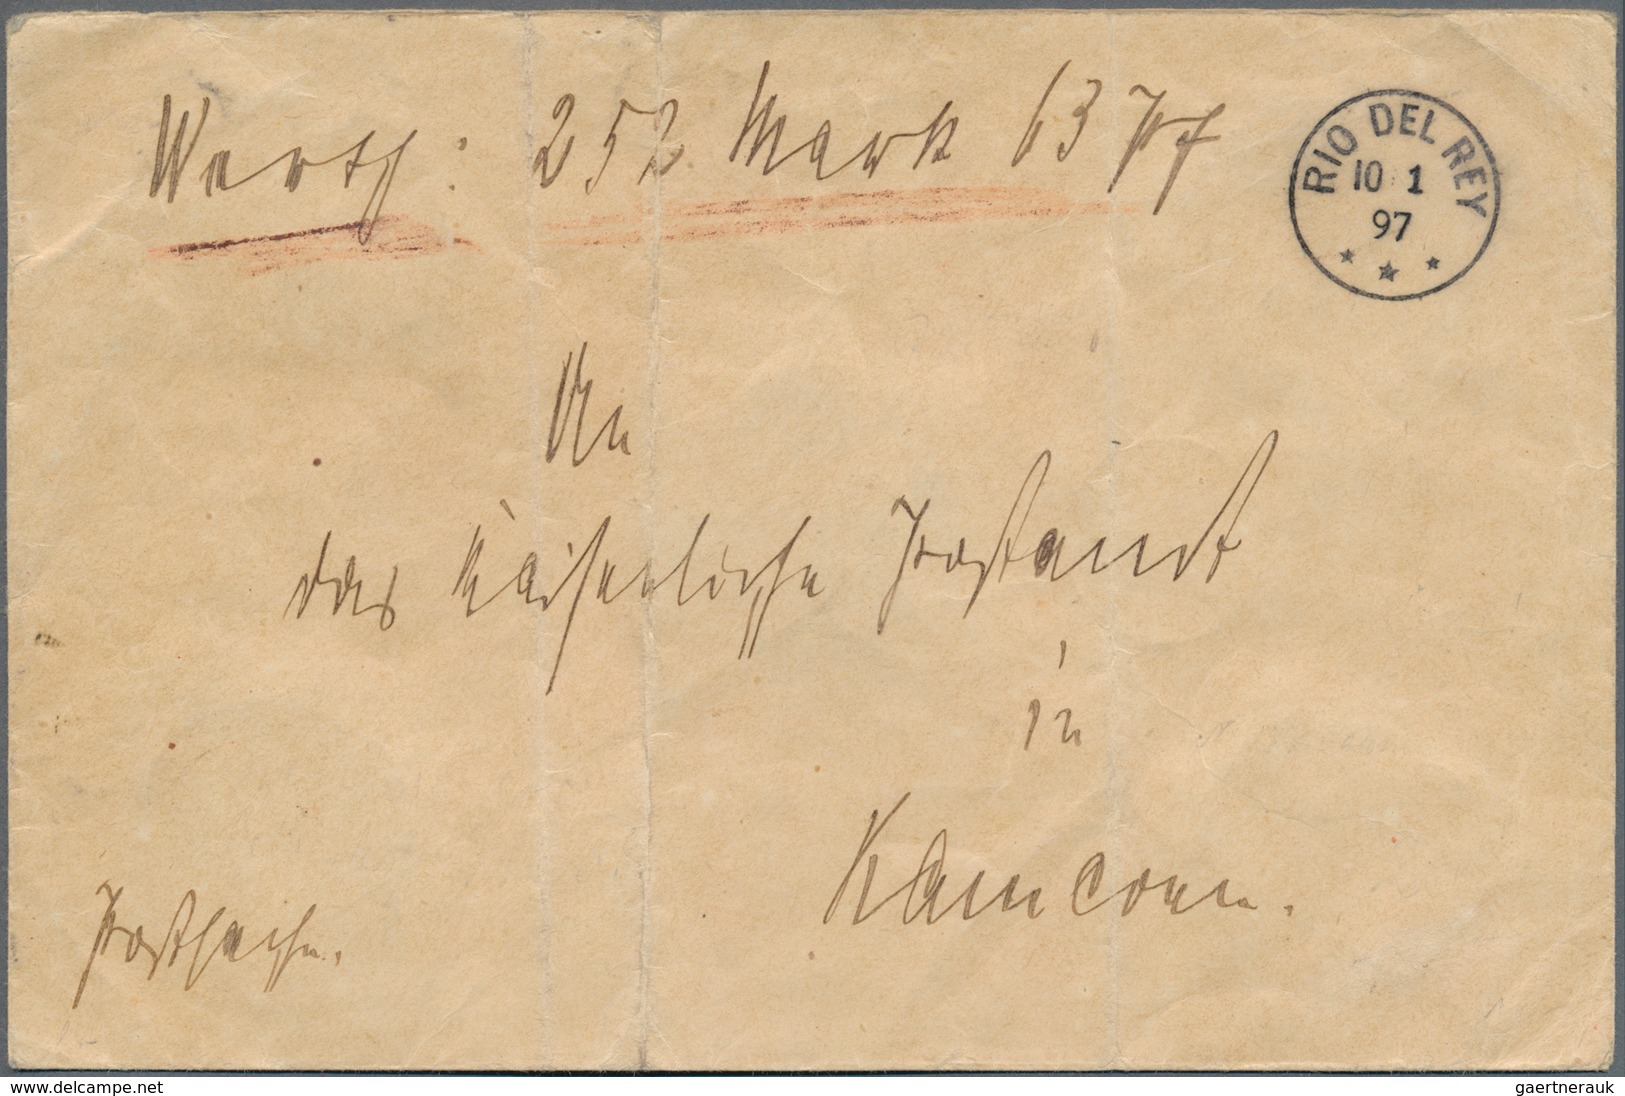 Werth: 252 Mark 63 Pf
RIO DEL REY
10 1
97
An
das Kaiserliche Postamt
in
Kamerun.
Postsache.
www.delcampe.net
gaertnerauk